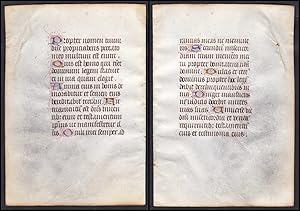 Propter nomen tuum
domine propitiaberis peccato
meo multum est enim.
Quis est homo qui timet
dominum legem statuit
ei in via quam elegit.
Anima eius in bonis de
morabitur et semen eius
hereditabit terram.
mentum est dominus
timentibus eum et testamentum
ipsius ut manifestetur il
lis. Oculi mei semper ad
ne memine
ris Secundum misericor
diam tuam memento mei
tu propter bonitatem tuam
domine. Dulcis et rectus
dominus propter hoc legem
dabit delinquentibus in
via. Diriget mansuetos
in iudicio docebit mites
vias suas. Universe vie
domini misericordia et veritas
requirentibus testamentum
eius et testimonia eius.